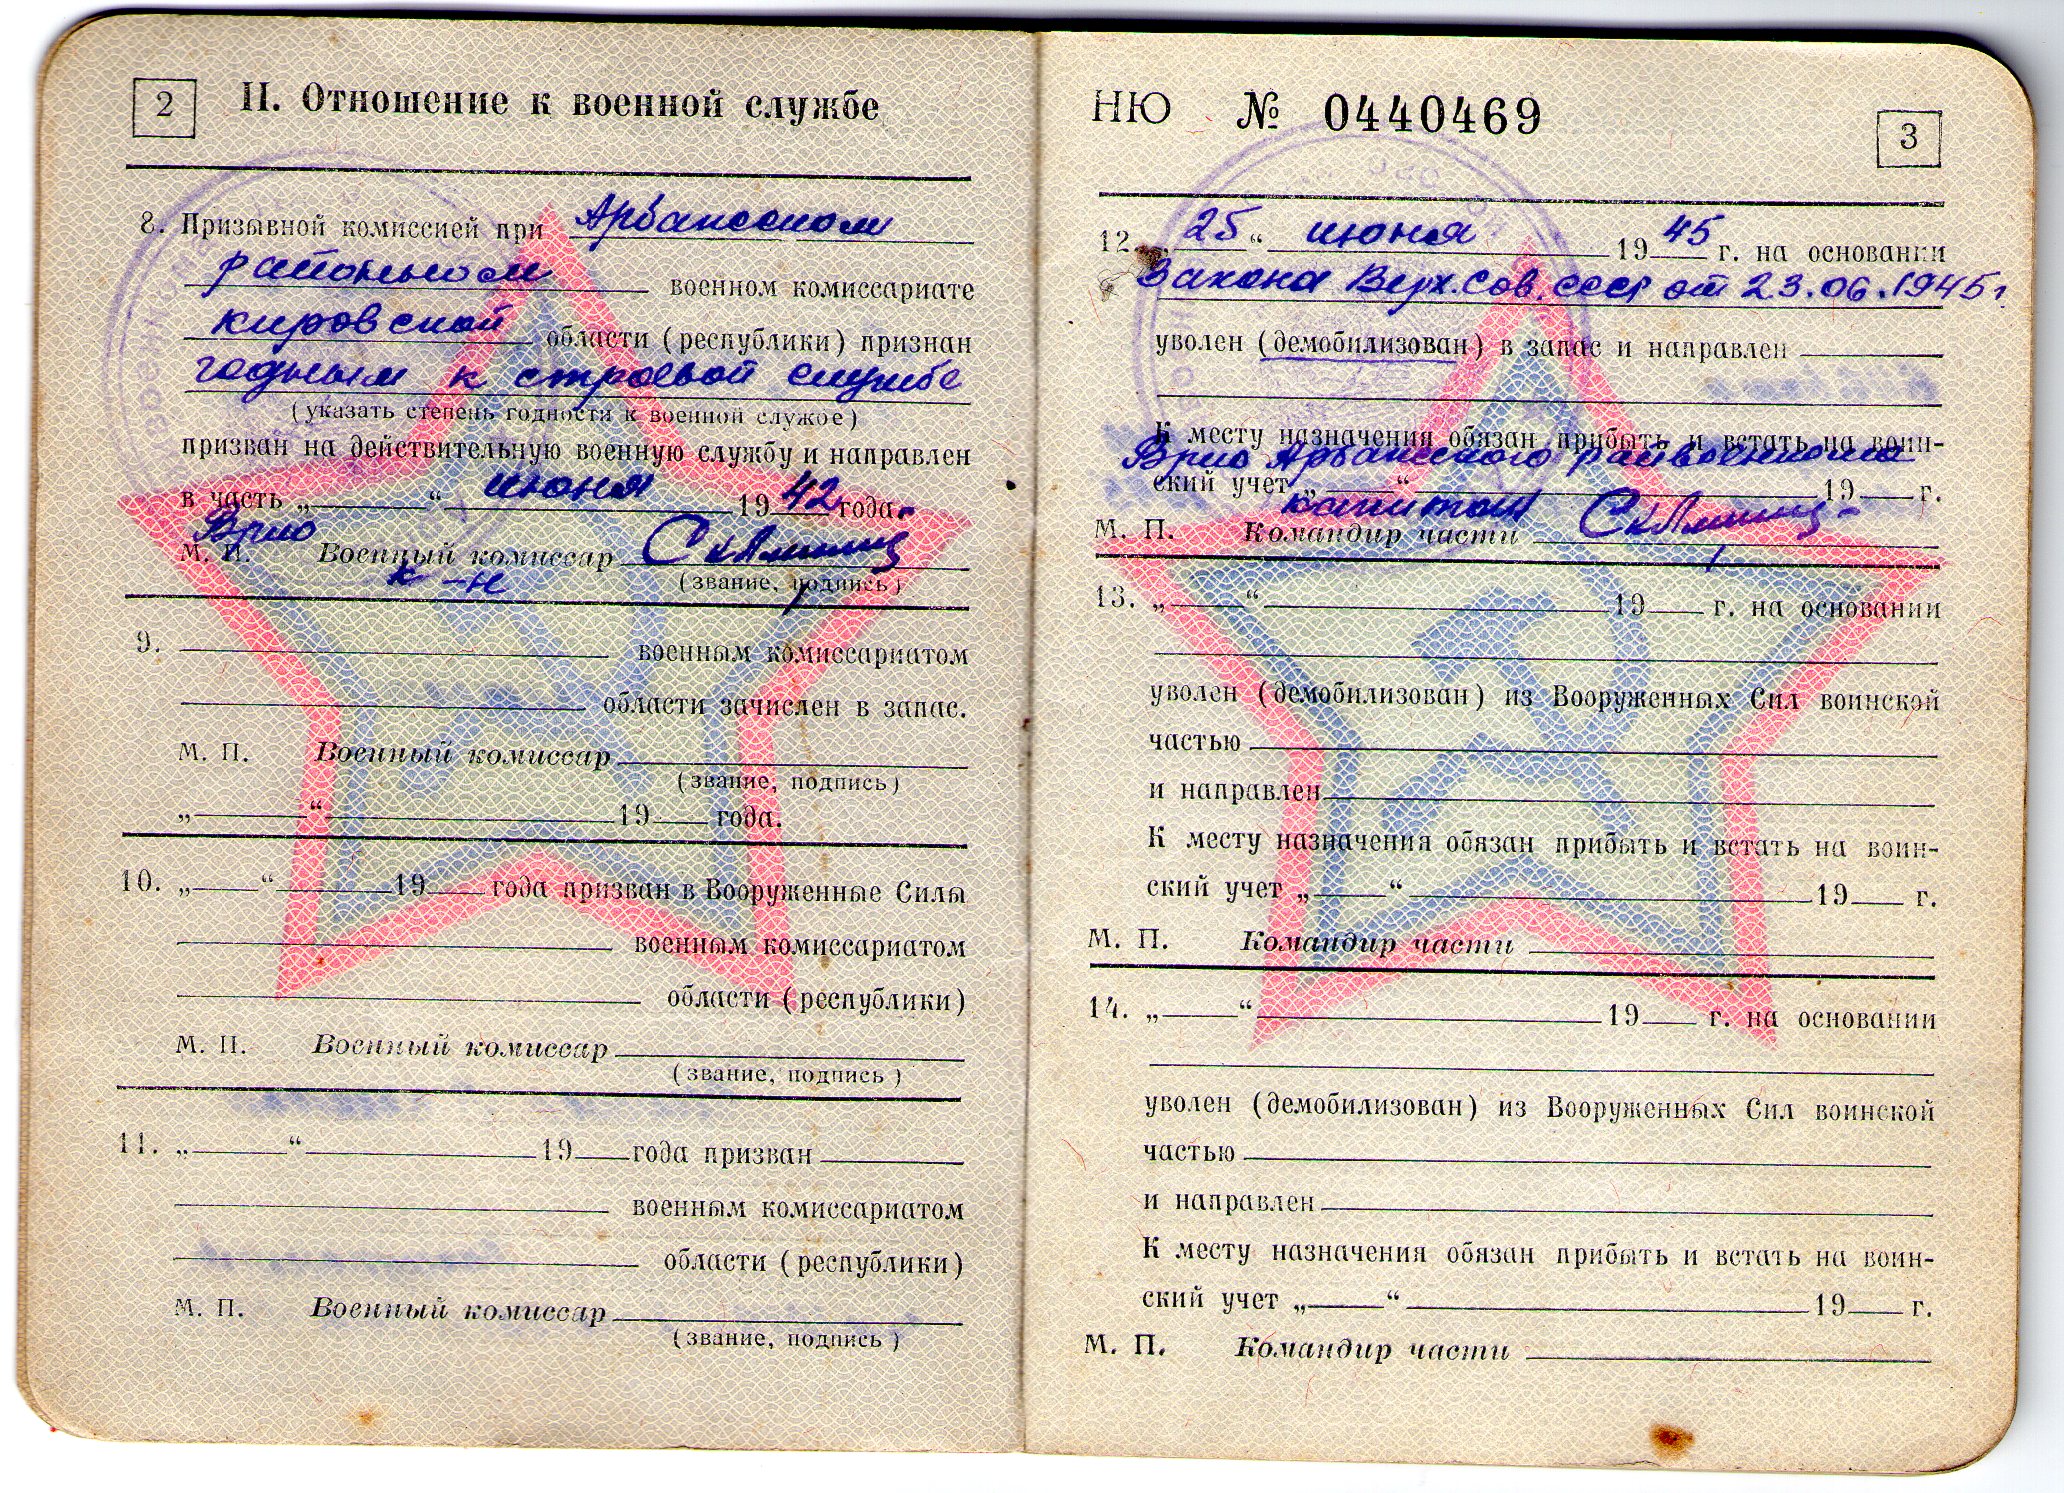 2
II. Отношение к военной службе
8. Призывной комиссией при Арбажском
районном военном комиссариате
кировской области (республики) признан
годным к строевой службе
(указать степень годности к военной службе)
призван на действительную военную службу и направлен
в часть „ “ июня 1942 года.
Врио
М. П. Военный комиссар
к-н (звание, подпись)
9. военным комиссариатом
области зачислен в запас.
М. П. Военный комиссар
(звание, подпись)
„ “ 19 года.
10. „ “ 19 года призван в Вооруженные Силы
военным комиссариатом
области (республики)
М. П. Военный комиссар
(звание, подпись)
11. „ “ 19 года призван
военным комиссариатом
области (республики)
М. П. Военный комиссар
(звание, подпись)
НЮ № 0440469
3
12. „25“ июня 1945 г. на основании
Закона Верх.Сов.СССР от 23.06.1945г.
уволен (демобилизован) в запас и направлен
К месту назначения обязан прибыть и встать на воин-
Врио Арбажского райвоенкома
ский учет „ “ 19 г.
капитан
М. П. Командир части
13. „ “ 19 г. на основании
уволен (демобилизован) из Вооруженных Сил воинской
частью
и направлен
К месту назначения обязан прибыть и встать на воин-
ский учет „ “ 19 г.
М. П. Командир части
14. „ “ 19 г. на основании
уволен (демобилизован) из Вооруженных Сил воинской
частью
и направлен
К месту назначения обязан прибыть и встать на воин-
ский учет „ “ 19 г.
М. П. Командир части